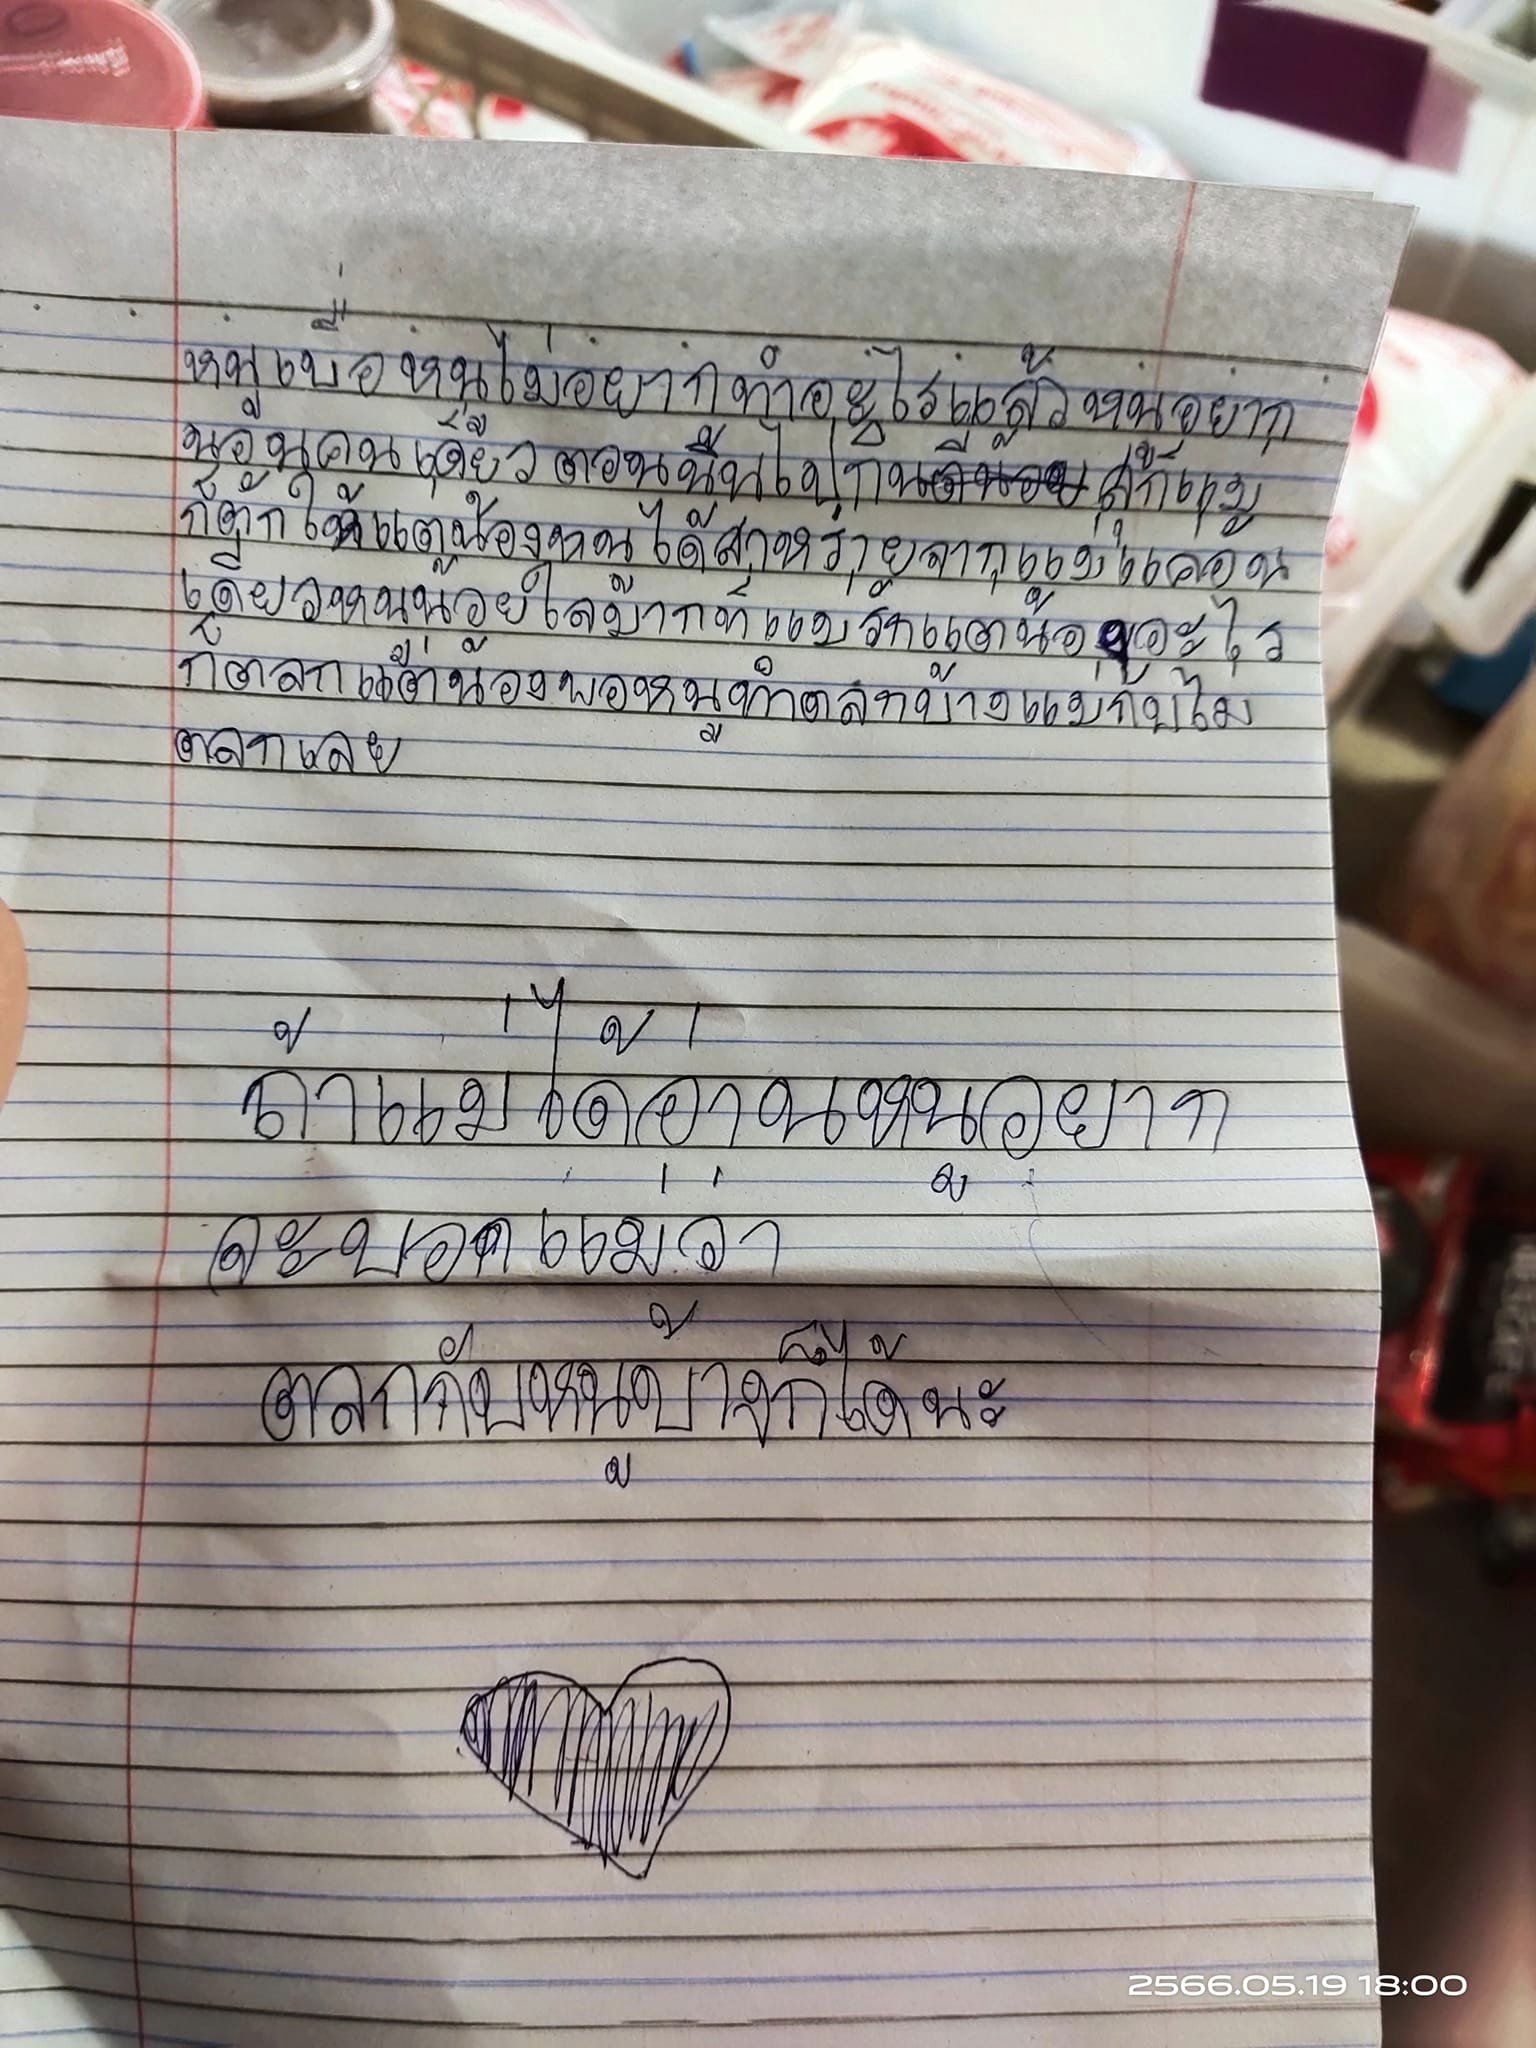 หนูเบื่อหนูไม่อยากทำอะไรแล้วหนูอยาก
นอนคนเดียวตอนนี้ไปกิน สุกี้แม่
ก็ตักให้แต่น้องหนูได้สาหร่ายจากแม่แค่อัน
เดียวหนูน้อยใจมากที่แม่รักแต่น้องอะไร
ก็ตลกแต่น้องพอหนูทำตลกบ้างแม่กับไม่
ตลกเลย
ถ้าแม่ได้อ่านหนูอยาก
จะบอกแม่ว่า
ตลกกับหนูบ้างก็ได้นะ
2566.05.19 18:00